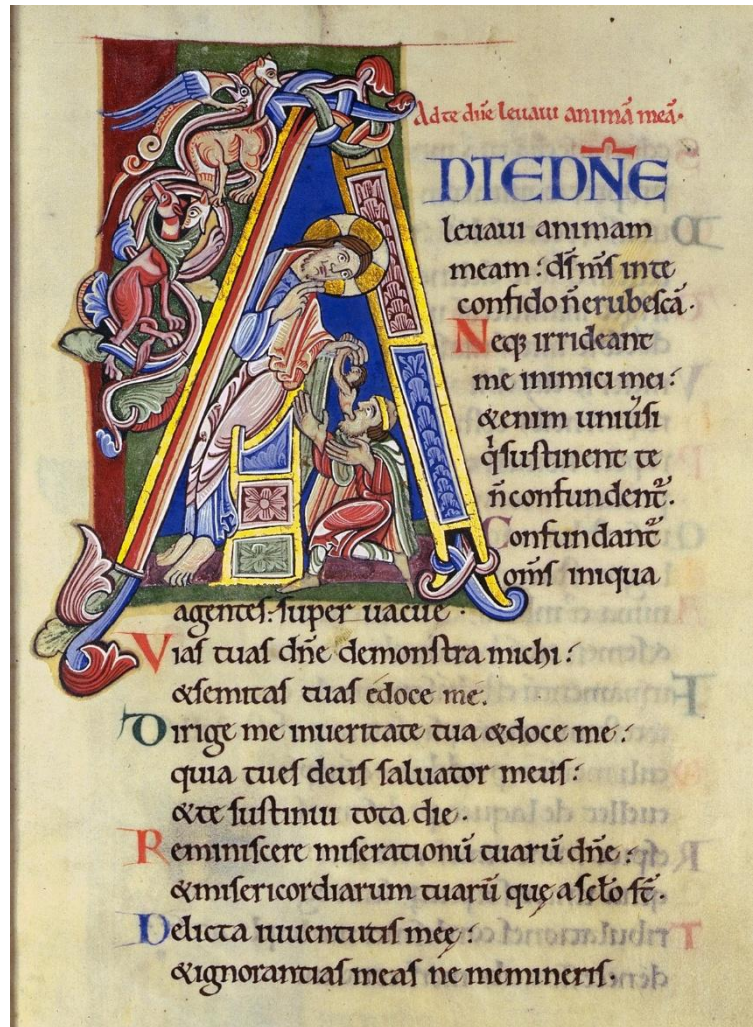 Adte dñe leuaui animã meã·
ADTEDÑE
leuaui animam
meam: dſ mſ inte
confido ñ erubeſcã·
Neq; irrideant
me inimici mei:
&enim uniũſi
q̇ſuſtinent te
ñ confundent̃·
Confundant̃
om̃ſ iniqua
agenteſ: ſuper uacue·
Viaſ tuaſ dñe demonſtra michi:
&ſemitaſ tuaſ edoce me·
Dirige me inueritate tua &doce me:
quia tueſ deuſ ſaluator meuſ:
&te ſuſtinui tota die·
Reminiſcere miſerationũ tuarũ dñe:
&miſericordiarum tuarũ quę aſcło ſt̃·
Delicta iuuentutiſ meę:
&ignorantiaſ meaſ ne memineriſ·